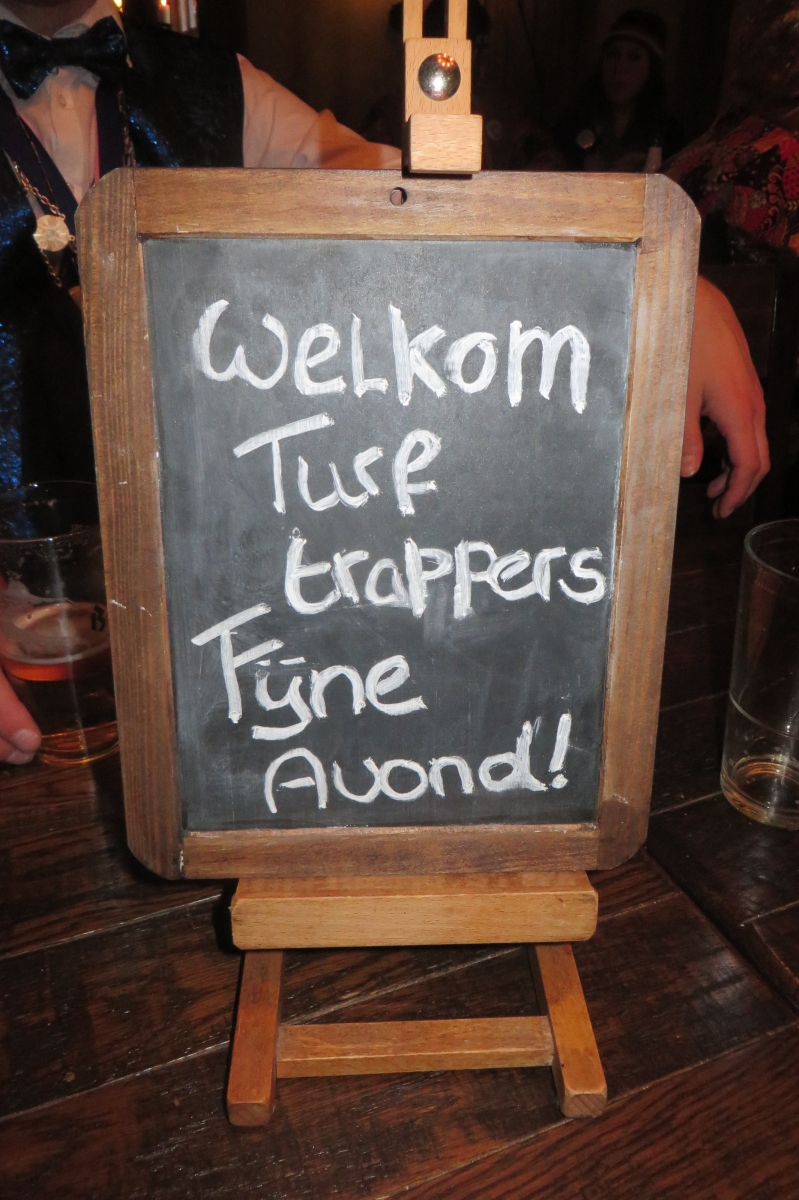 Welkom
Turf
trappers
Fijne
Avond!